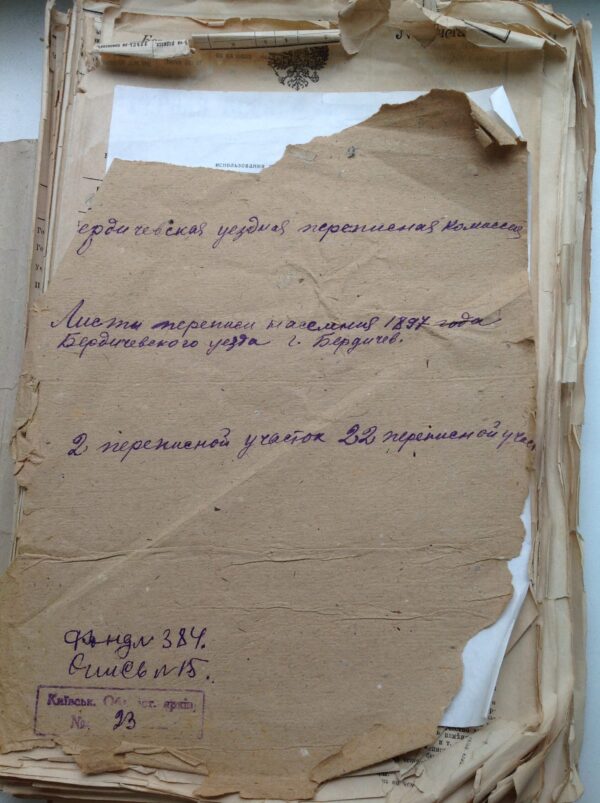 использования
ердичевская уездная переписная комиссия
Листы переписи населения 1897 года
Бердичевского уезда г. Бердичев.
2 переписной участок 22 переписной учас
Фонд № 384.
Опись № 15.
Київськ. Об ст. архів
№ 23